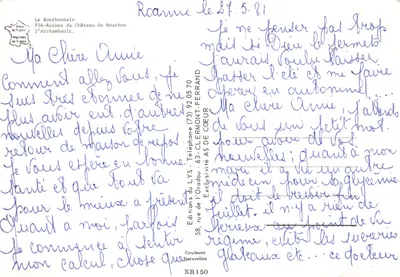 Le Bourbonnais
F56-Ruines du Château de Bourbon
l'Archambault.
Roanne le 27.5.81
Ma Chère Annie
Comment allez vous, je
suis très étonnée de ne
plus avoir eut d'autres
nouvelles depuis votre
retour de maison de repos
je vous espère en bonne
santé et que tout va
pour le mieux a présent
Quant a moi, parfois
je commence à sentir
mon calcul, chose que
je ne penser pas trop
mais si Dieu le permet
j'aurais voulu laisser
passer l'été et me faire
opérer en automne
Ma chère Annie j'attends
de vous un petit mot
pour avoir de vos
nouvelles, quant a mon
mari il a vu un autre
médecin pour
il doit le revoir en
juillet, il n'y a rien de
sérieux au point de vu
régime, évité les sucreries
gateaux etc... ce docteur
Editions du LYS - Téléphone (73) 92 05 70
58, rue de l'Oradou - 63-CLERMONT-FERRAND
Exclusivité AS DE CŒUR
Couleurs
Naturelles
XR150